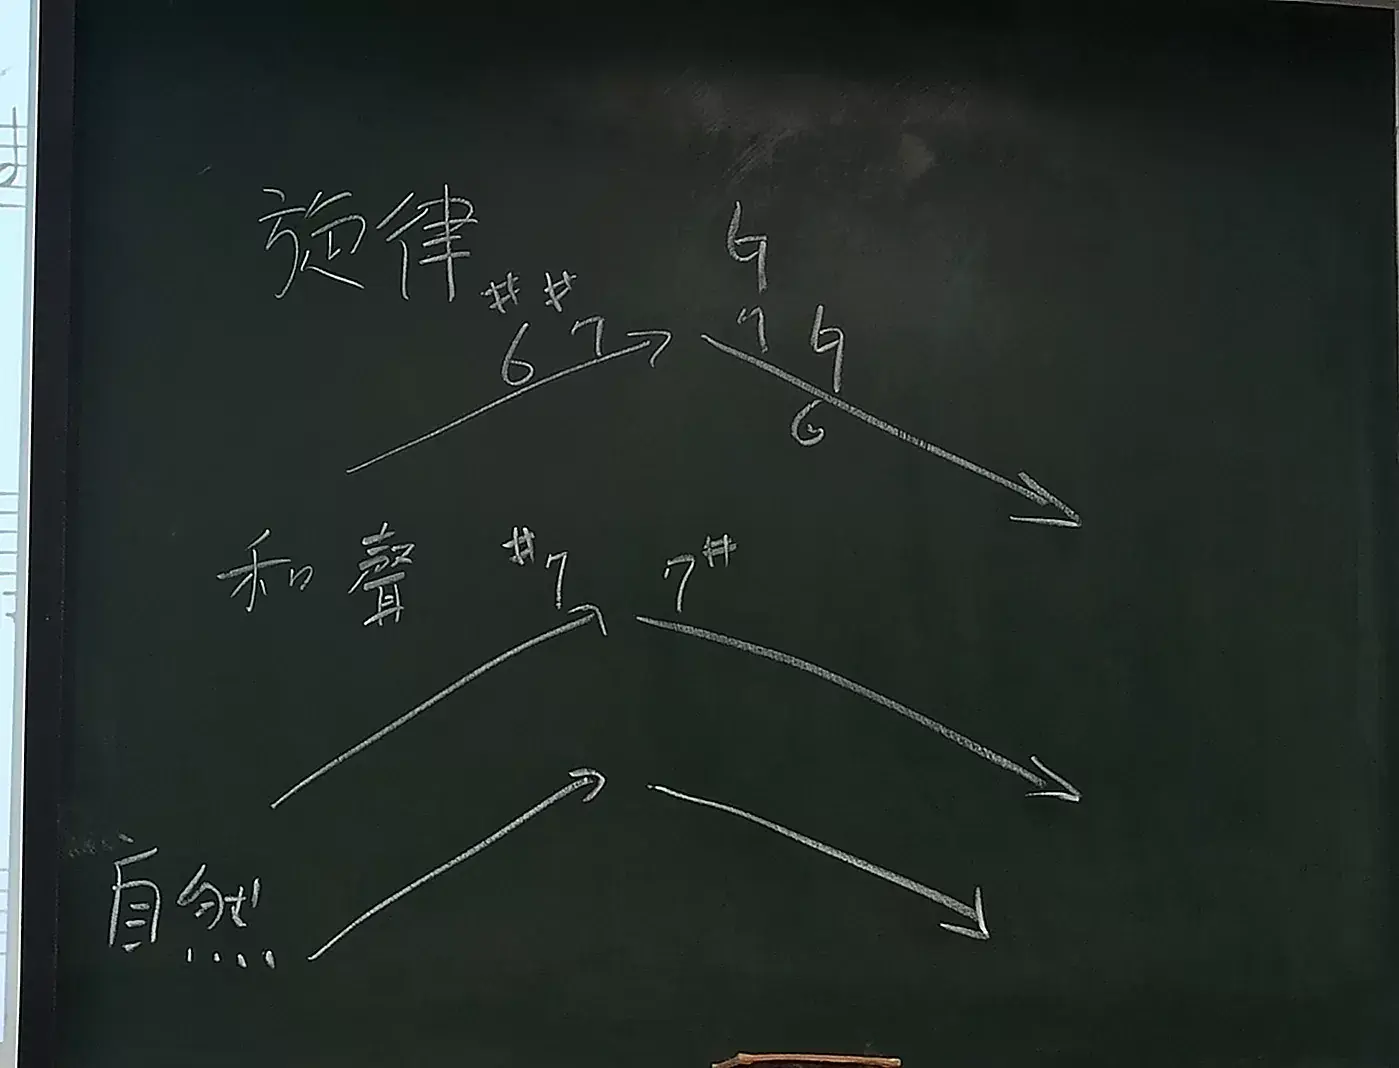 旋律
# #
6 7
♮
7 ♮
6
和聲 #7 7#
自然